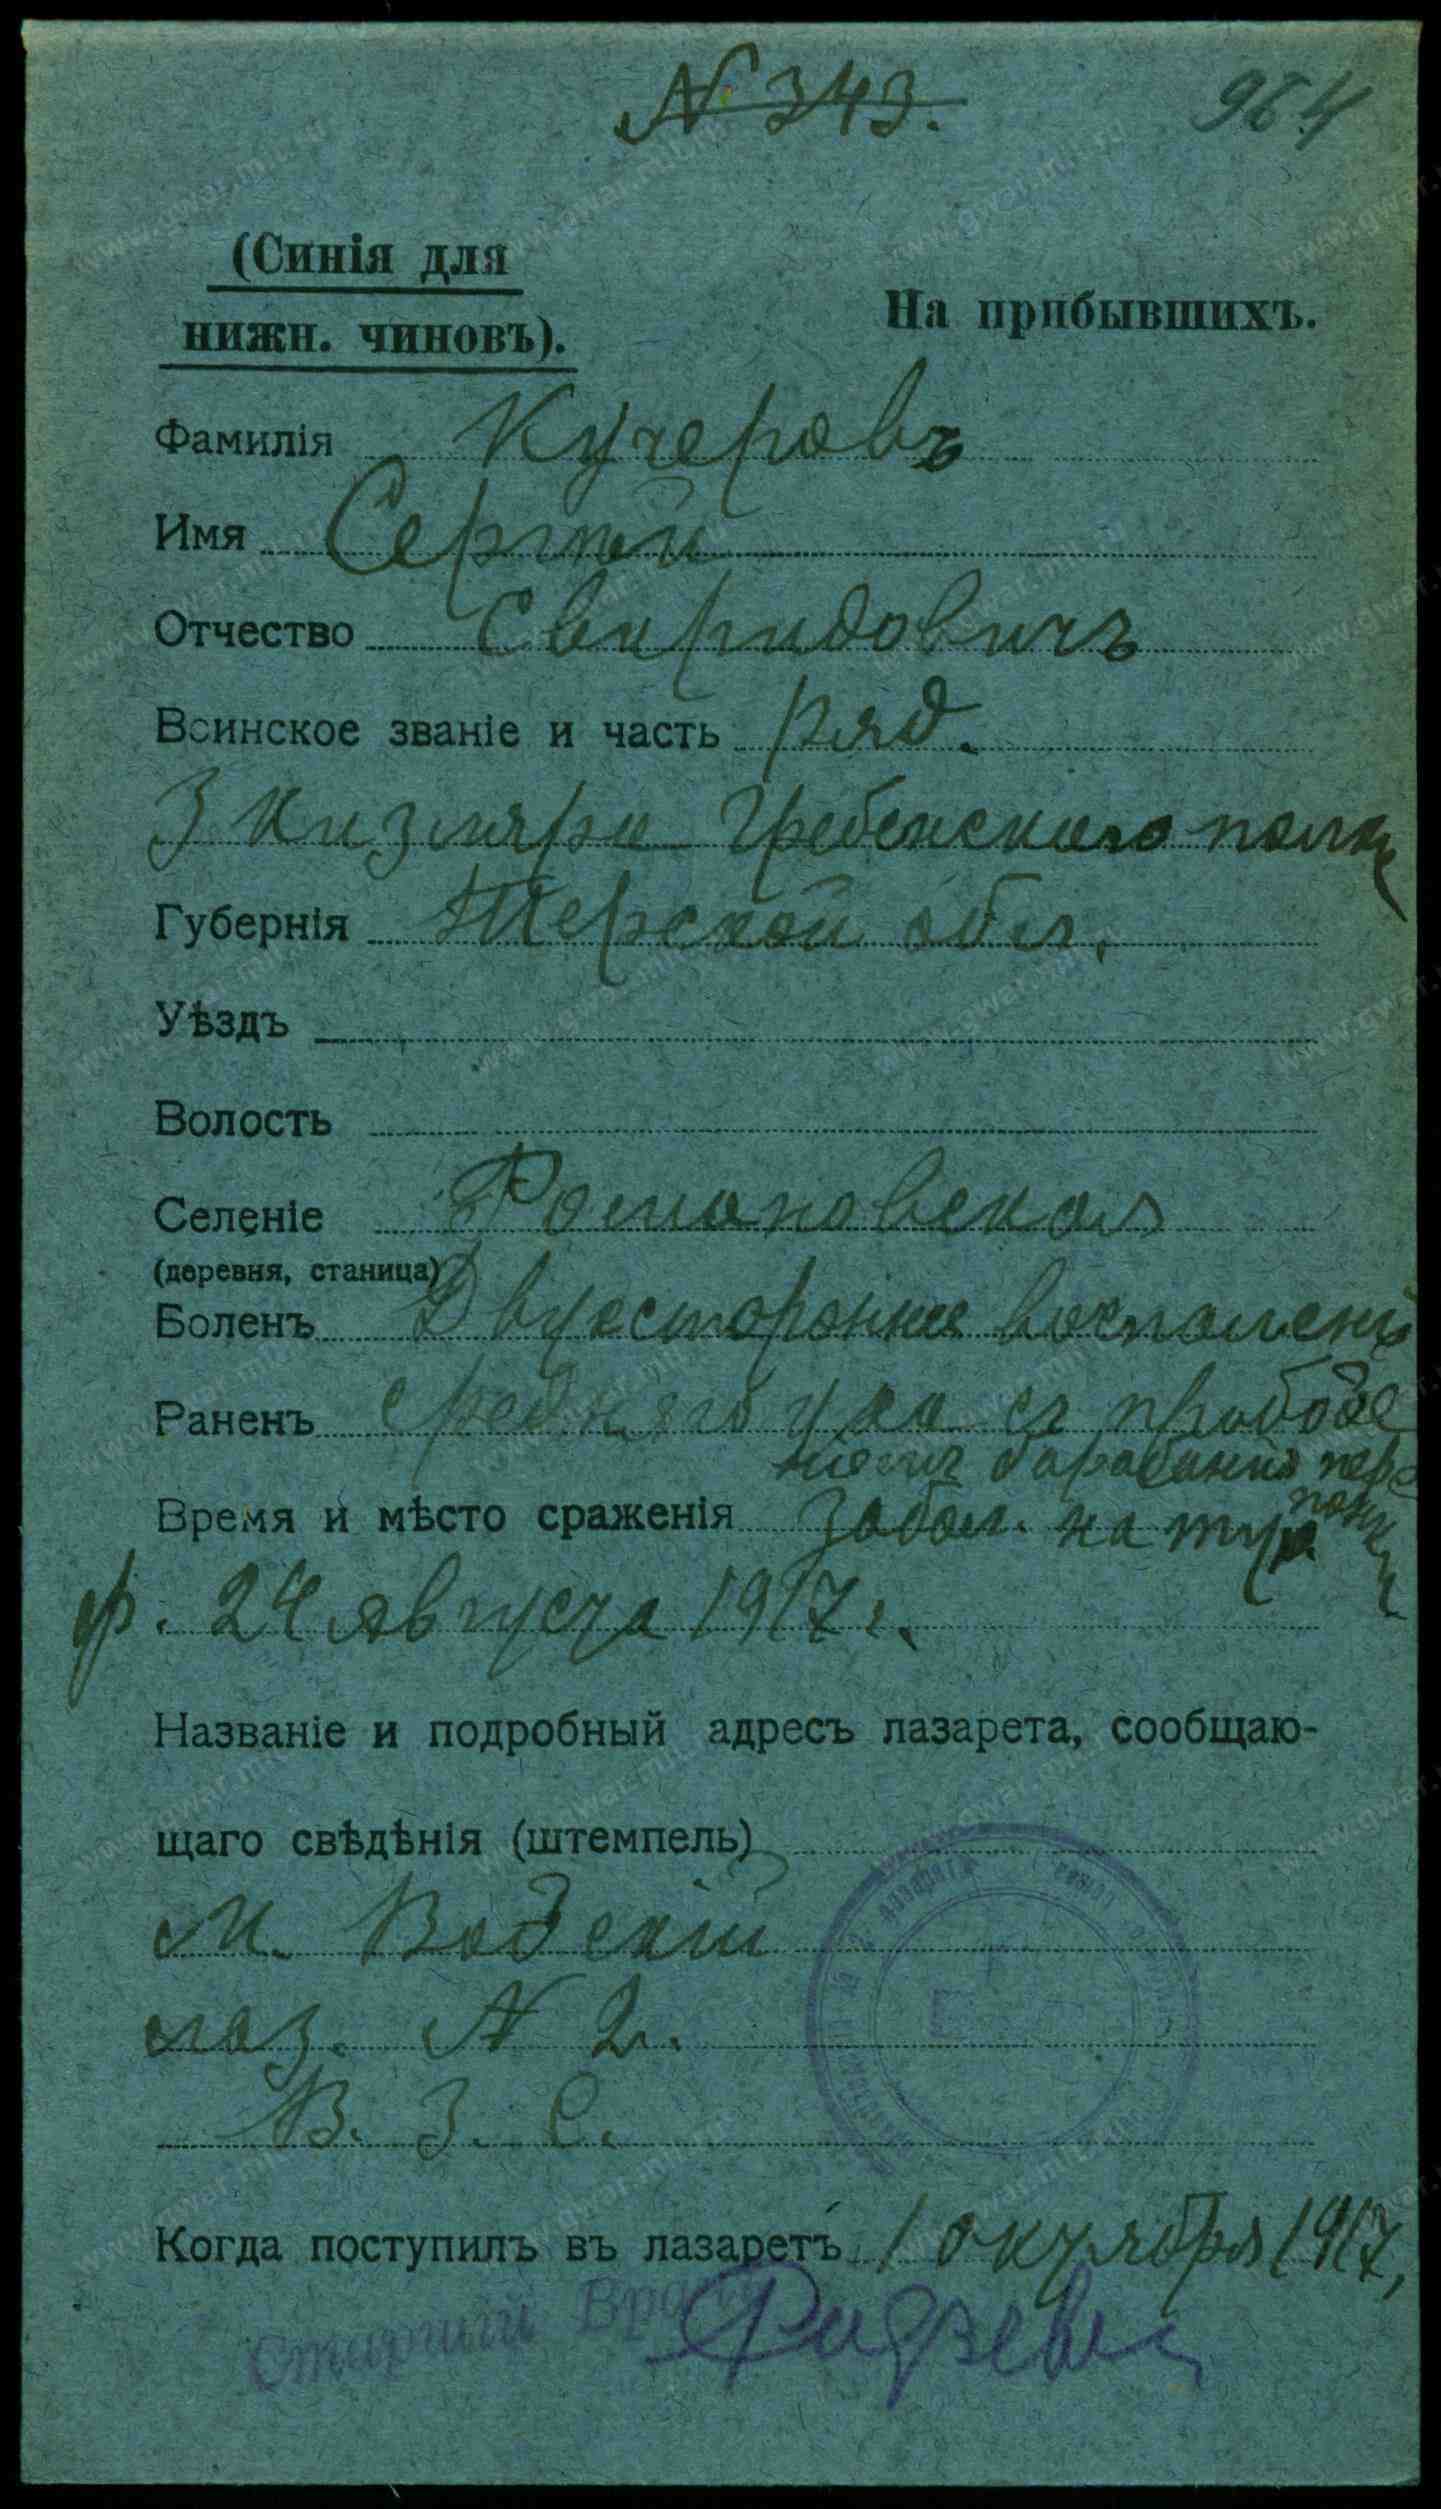 № 343. 964
(Синія для
нижн. чиновъ).
На прибывшихъ.
Фамилія Кучеровъ
Имя Сергѣй
Отчество Свиридовичъ
Воинское званіе и часть ряд.
3 Кизляро Гребенского полка
Губернія Терской обл.
Уѣздъ
Волость
Селеніе Романовская
(деревня, станица)
Боленъ Двухстороннее воспаленіе
Раненъ средняго уха съ прободе
ніемъ барабанной пере
понки
Время и мѣсто сраженія забол. на тур.
ф. 24 августа 1917 г.
Названіе и подробный адресъ лазарета, сообщаю-
щаго свѣдѣнія (штемпель)
лаз. № 2.
В. З. С.
Когда поступилъ въ лазаретъ 1 октября 1917,
Старшій Врачъ